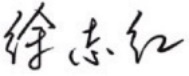 徐志红